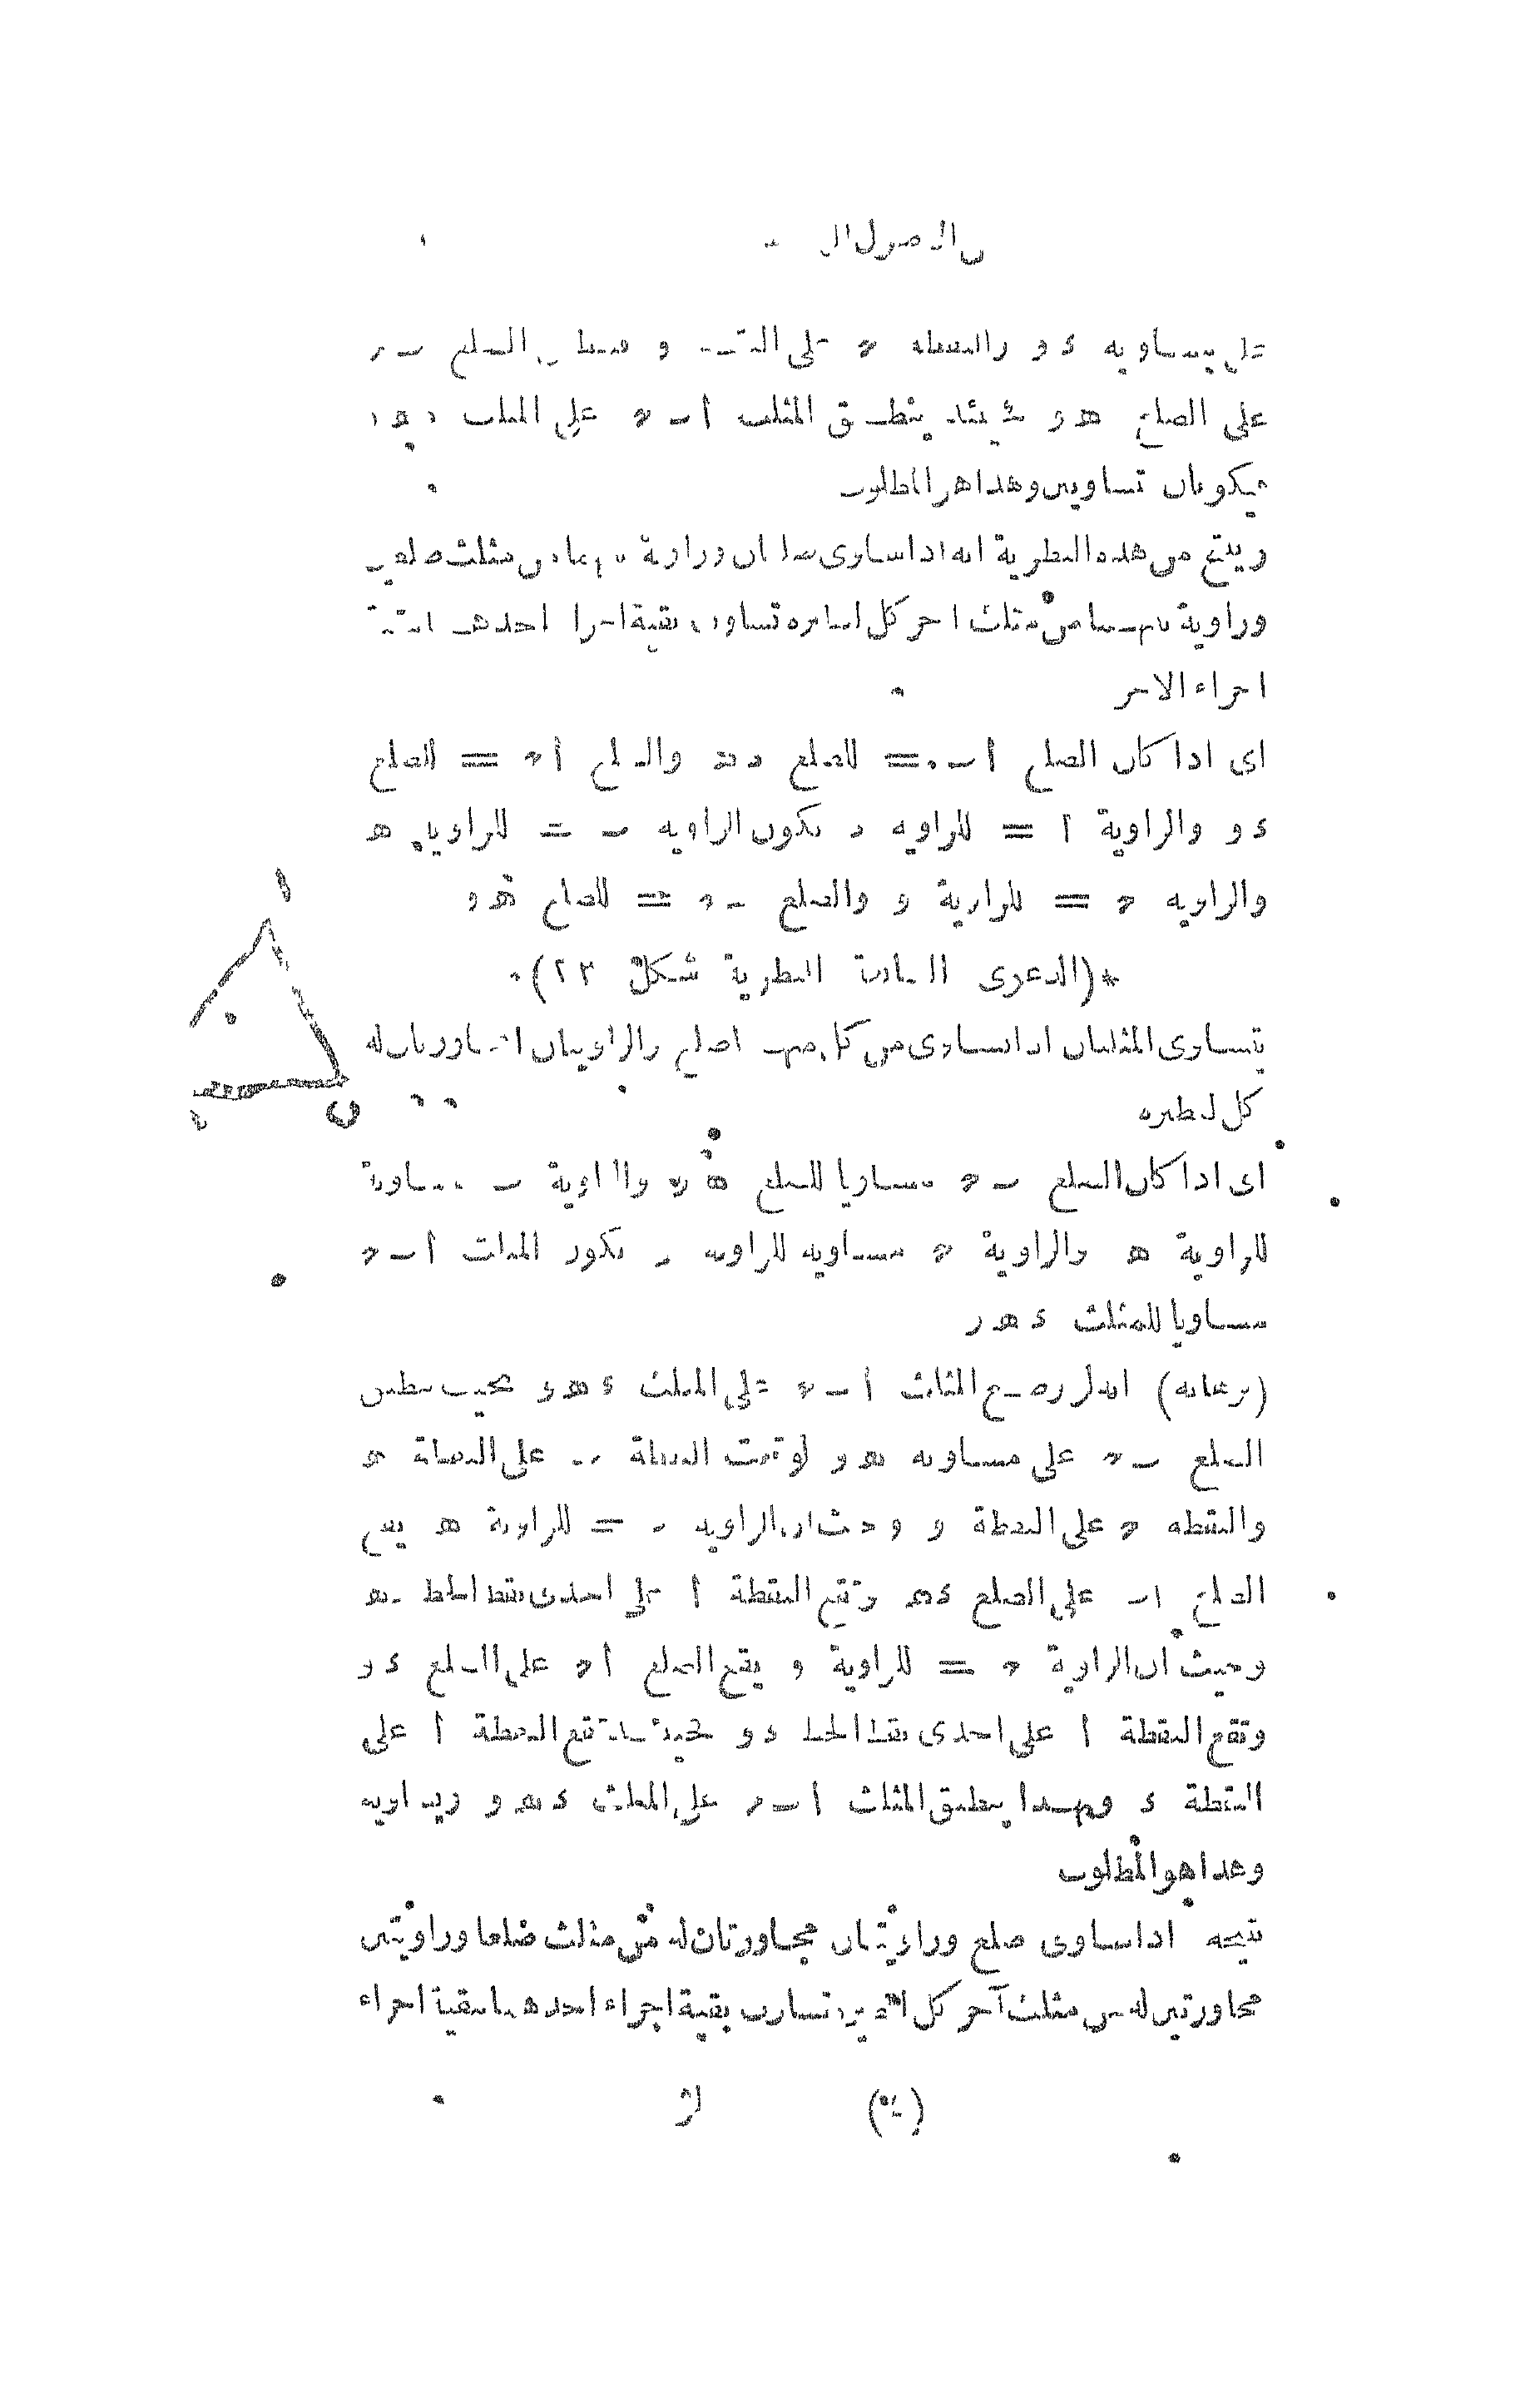 على مساويه د و والنقطه ح على النقطة و فينطبق الضلع ب ح
على الضلع ه و فحينئذ ينطبق المثلث أ ب ح على المثلث د ه و
فيكونان متساويين وهذا هو المطلوب
وينتج من هذه النظرية انه اذا ساوى ضلعان وزاوية بينهما من مثلث ضلعين
وزاوية بينهما من مثلث اخر كل لنظيره تساوت بقية اجزا احدهما لبقية
اجزاء الاخر
اى اذا كان الضلع أ ب = للضلع د ه والضلع أ ح = للضلع
د و والزاوية أ = للزاويه د تكون الزاويه ب = للزاويه ه
والزاويه ح = للزاوية و والضلع ب ح = للضلع ه و
*(الدعوى النظرية شكل ٢٣)*
يتساوى المثلثان اذا تساوى من كل منهما ضلع والزاويتان المجاورتان له
كل لنظيره
اى اذا كان الضلع ب ح مساويا للضلع ه و والزاوية ب مساوية
للزاوية ه والزاوية ح مساويه للزاويه و يكون المثلث أ ب ح
مساويا للمثلث د ه و
(برهانه) انه لو وضع المثلث أ ب ح على المثلث د ه و بحيث ينطبق
الضلع ب ح على مساويه ه و لوقعت النقطة ب على النقطة ه
والنقطه ح على النقطة و وحيث ان الزاويه ب = للزاوية ه يقع
الضلع أ ب على الضلع د ه وتقع النقطة أ على احدى نقط الخط ده
وحيث ان الزاوية ح = للزاوية و يقع الضلع أ ح على الضلع د و
وتقع النقطة أ على احدى نقط الخط د و فحينئذ تقع النقطة أ على
النقطة د وبهذا ينطبق المثلث أ ب ح على المثلث د ه و ويساويه
وهذا هو المطلوب
نتيجه اذا ساوى ضلع وزاويتان مجاورتان له من مثلث ضلعا وزاويتين
مجاورتين له من مثلث آخر كل لنظيره تساوت بقية اجزاء احدهما لبقية اجزاء